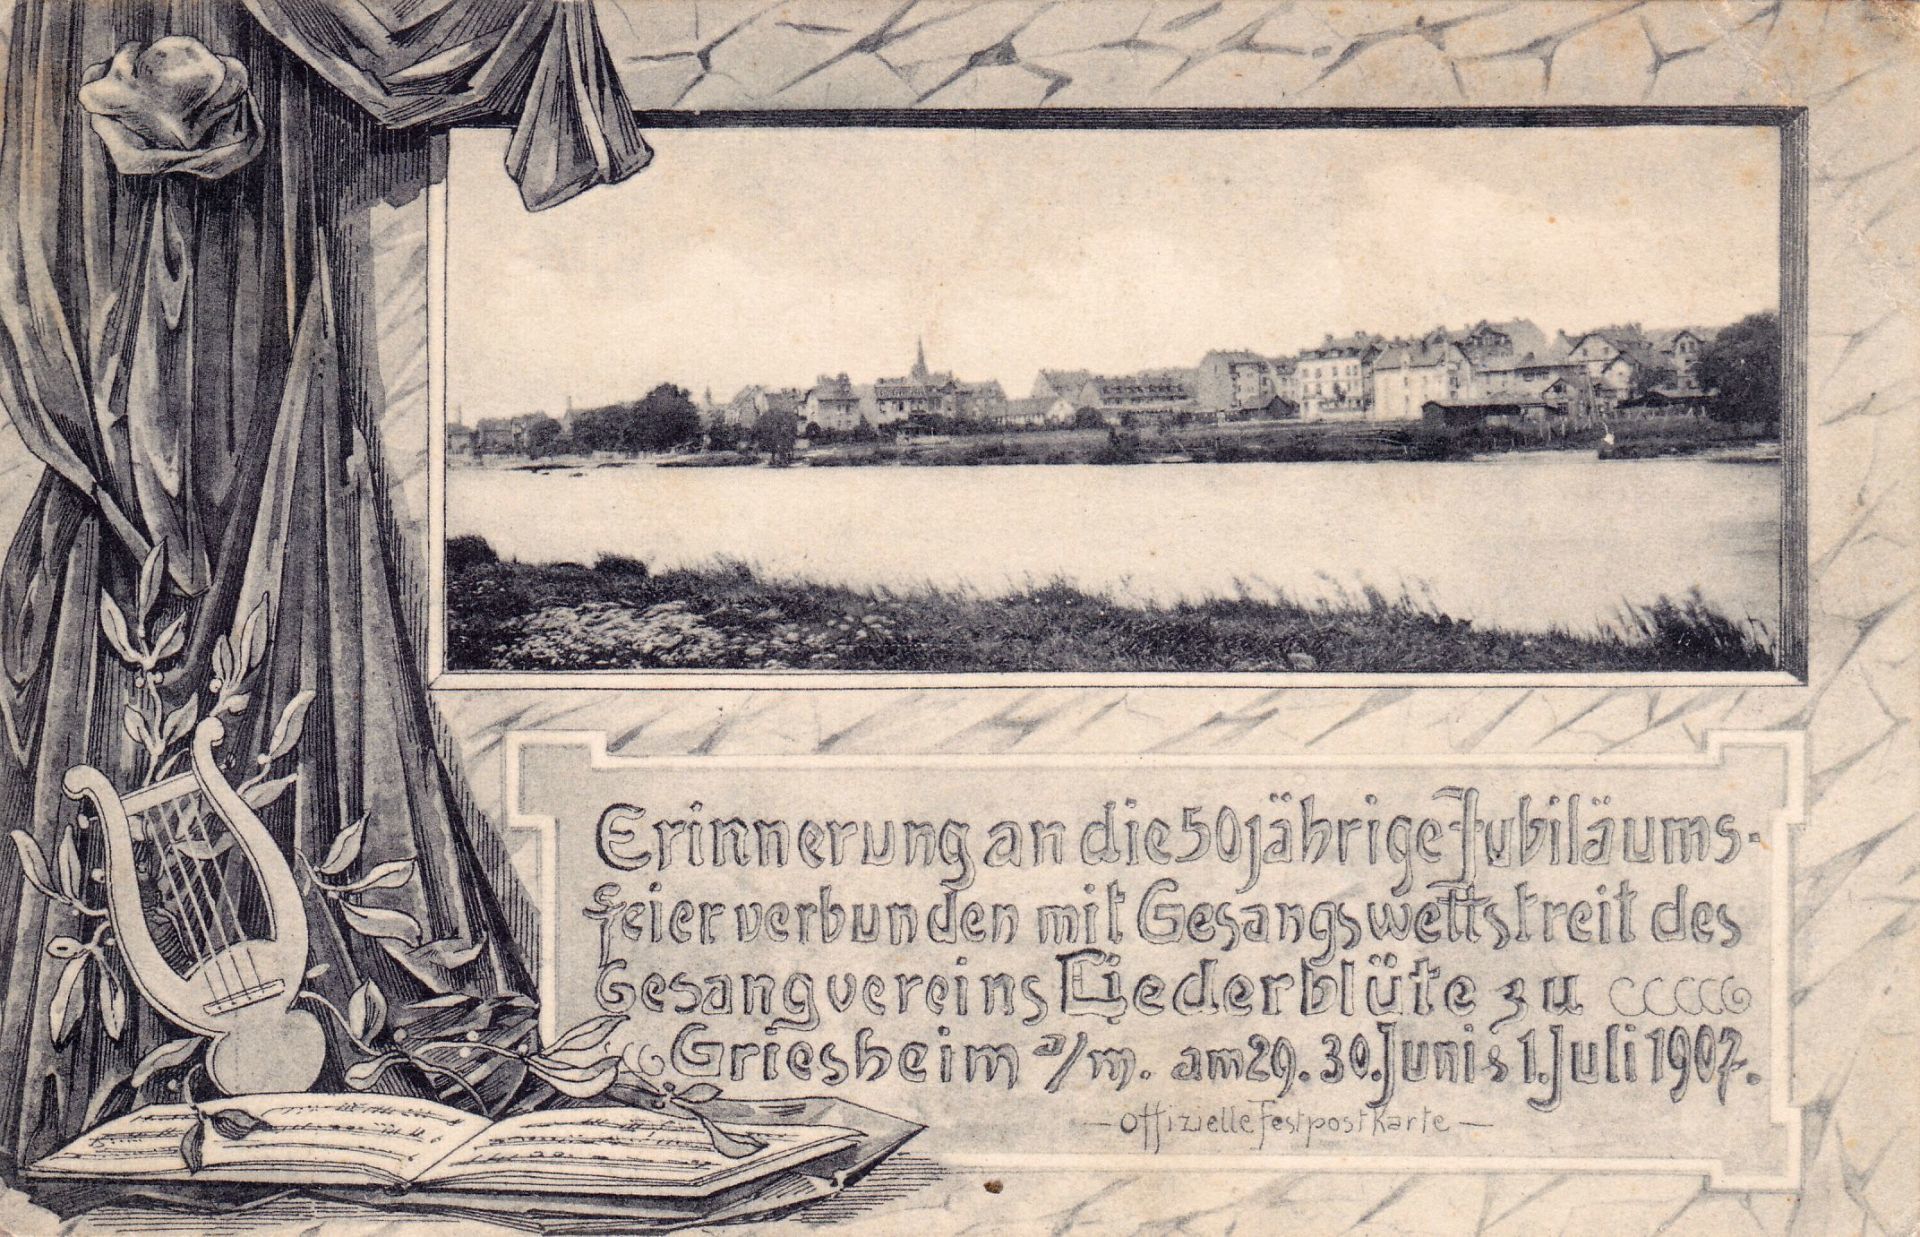 Erinnerung an die 50jährige Jubiläums-
feier verbunden mit Gesangswettstreit des
Gesangvereins Liederblüte zu
Griesheim a/m. am 29. 30. Juni & 1. Juli 1907.
— Offizielle Festpostkarte —